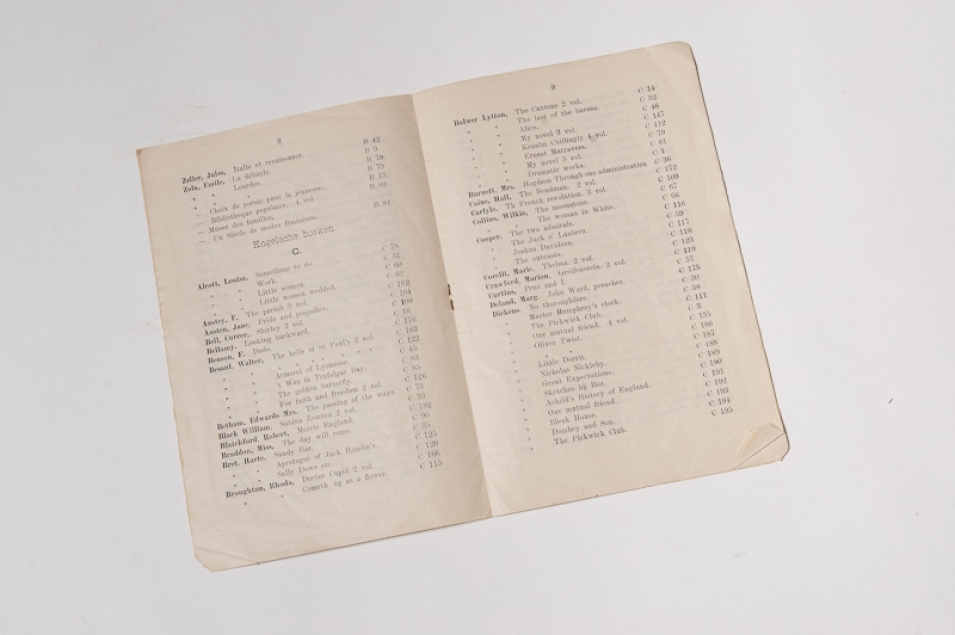 8
Zeller, Jules, Italie et renaissance. B 42
Zola, Emile, La débâcle. B 9
„ „ Lourdes. B 78
— Choix de poésie pour la jeunesse. B 79
— Bibliothèque populaire. 4 vol.
— Musée des familles,
— Un Siècle de modes feminines, B 84
Engelsche boeken.
C.
Alcott, Louisa, Something to do. C 78
„ „ Work. C 31
„ „ Little women. C 60
„ „ Little women wedded. C 82
Anstey, F. The parish 3 vol. C 162
Austen, Jane, Pride and prejudice. C 104
Bell, Currer, Shirley 2 vol. C 108
Bellamy, Looking backward. C 16
Benson, F. Dodo. C 176
Besant, Walter, The bells of St. Paul's 2 vol. C 163
„ „ „ „ „ „ „ C 122
„ „ Armorel of Lyonesse. C 45
„ „ 't Was in Trafalgar Bay. C 83
„ „ The golden butterfly. C 85
„ „ For faith and freedom 2 vol. C 126
Betham, Edwards Mrs. The passing of the ways. C 73
Black William, Sabina Zembra 2 vol. C 33
Blatchford, Robert, Merrie England. C 182
Braddon, Miss, The day will come. C 90
Bret, Harte, Sandy Bar. C 35
„ „ Aprotegee of Jack Hamlin's. C 125
„ „ Sally Dows etc. C 120
Broughton, Rhoda, Doctor Cupid 2 vol. C 166
„ „ Cometh up as a flower. C 115
9
Bulwer Lytton, The Caxtons 2 vol. C 14
„ „ The last of the barons. C 32
„ „ Alice. C 46
„ „ My novel 3 vol. C 147
„ „ Kenelm Chillingly 4 vol. C 112
„ „ Ernest Matravers. C 79
„ „ My novel 3 vol. C 61
„ „ Dramatic works. C 1
Burnett, Mrs. Hogdson Through one administration C 36
Caine, Hall, The Bondman. 2 vol. C 172
Carlyle, Th French revolution. 3 vol. C 109
Collins, Wilkie, The moonstone. C 67
„ „ The woman in White. C 66
Cooper, The two admirals. C 116
„ The Jack o' Lantern. C 59
„ Joshua Davidson. C 117
„ The outcasts. C 118
Corelli, Marie, Thelma. 2 vol. C 123
Crawford, Marion, Greifenstein. 2 vol. C 119
Curtius, Prue and I. C 57
Deland, Marg. John Ward, preacher. C 175
Dickens, No thoroughfare. C 30
„ Master Humphrey's clock. C 58
„ The Pickwick Club. C 111
„ Our mutual friend. 4 vol. C 3
„ Oliver Twist. C 135
„ „ „ C 186
„ Little Dorrit. C 187
„ Nicholas Nickleby. C 188
„ Great Expectations. C 189
„ Sketches bij Boz. C 190
„ Achild's History of England. C 191
„ Our mutual friend. C 192
„ Bleak House. C 193
„ Dombey and Son. C 194
„ The Pickwick Club. C 195